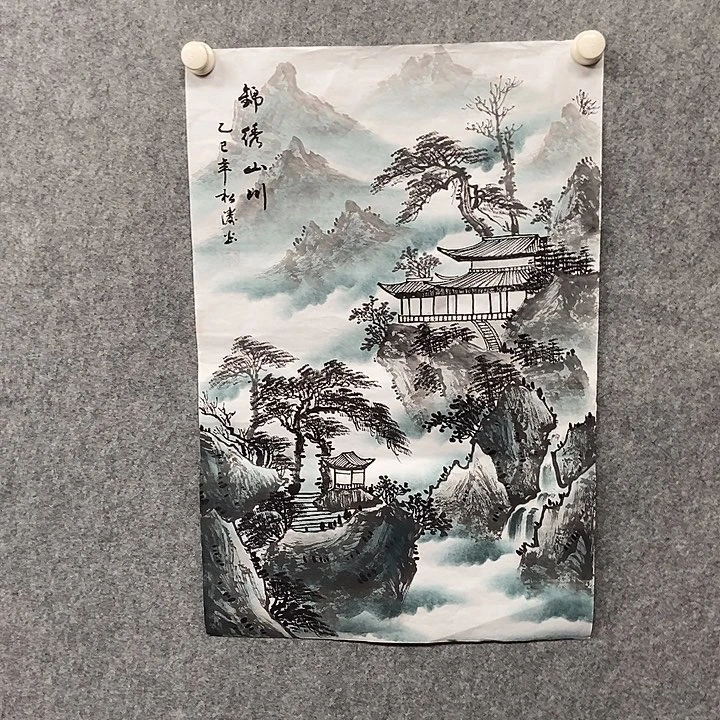 錦綉山川
乙巳年松濤画